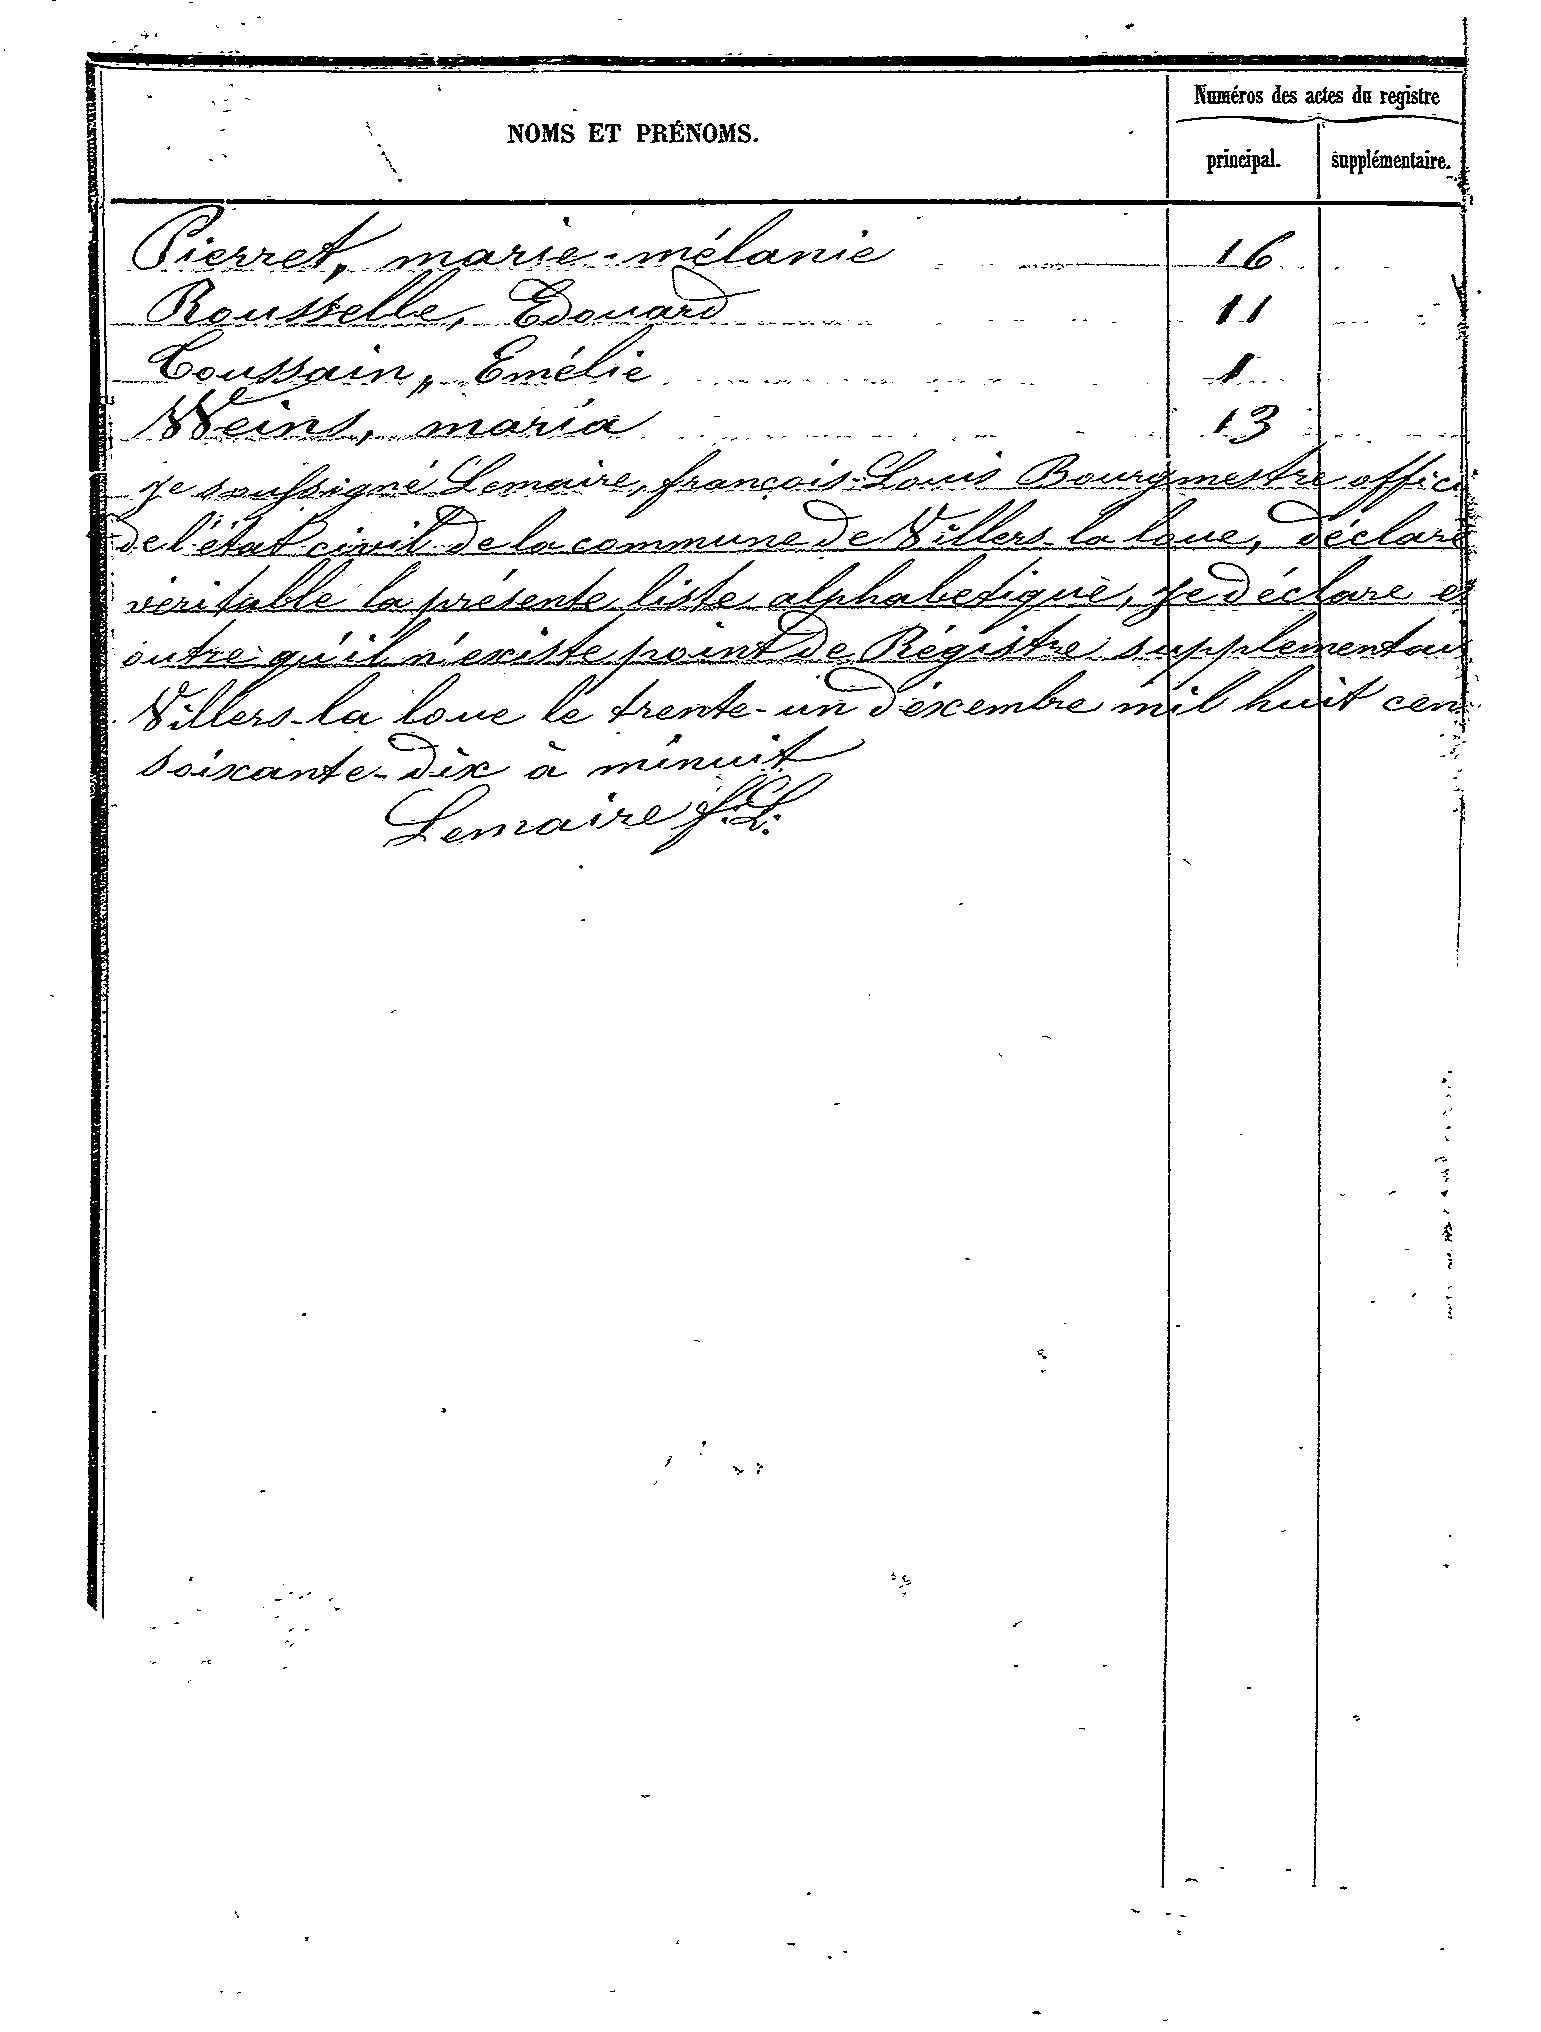 Numéros des actes du registre
NOMS ET PRÉNOMS.
principal. supplémentaire.
Pierret, marie-mélanie 16
Rousselle, Edouard 11
Toussain, Emélie 1
Weins, maria 13
je soussigné Lemaire, françois-Louis Bourgmestre offici
de l'état civil de la commune de Villers-la loue, déclare
véritable la présente liste alphabetique, je déclare e
outre qu'il n'existe point de Régistre supplementai
Villers-la loue le trente-un décembre mil huit cen
soixante-dix à minuit
Lemaire f.L.